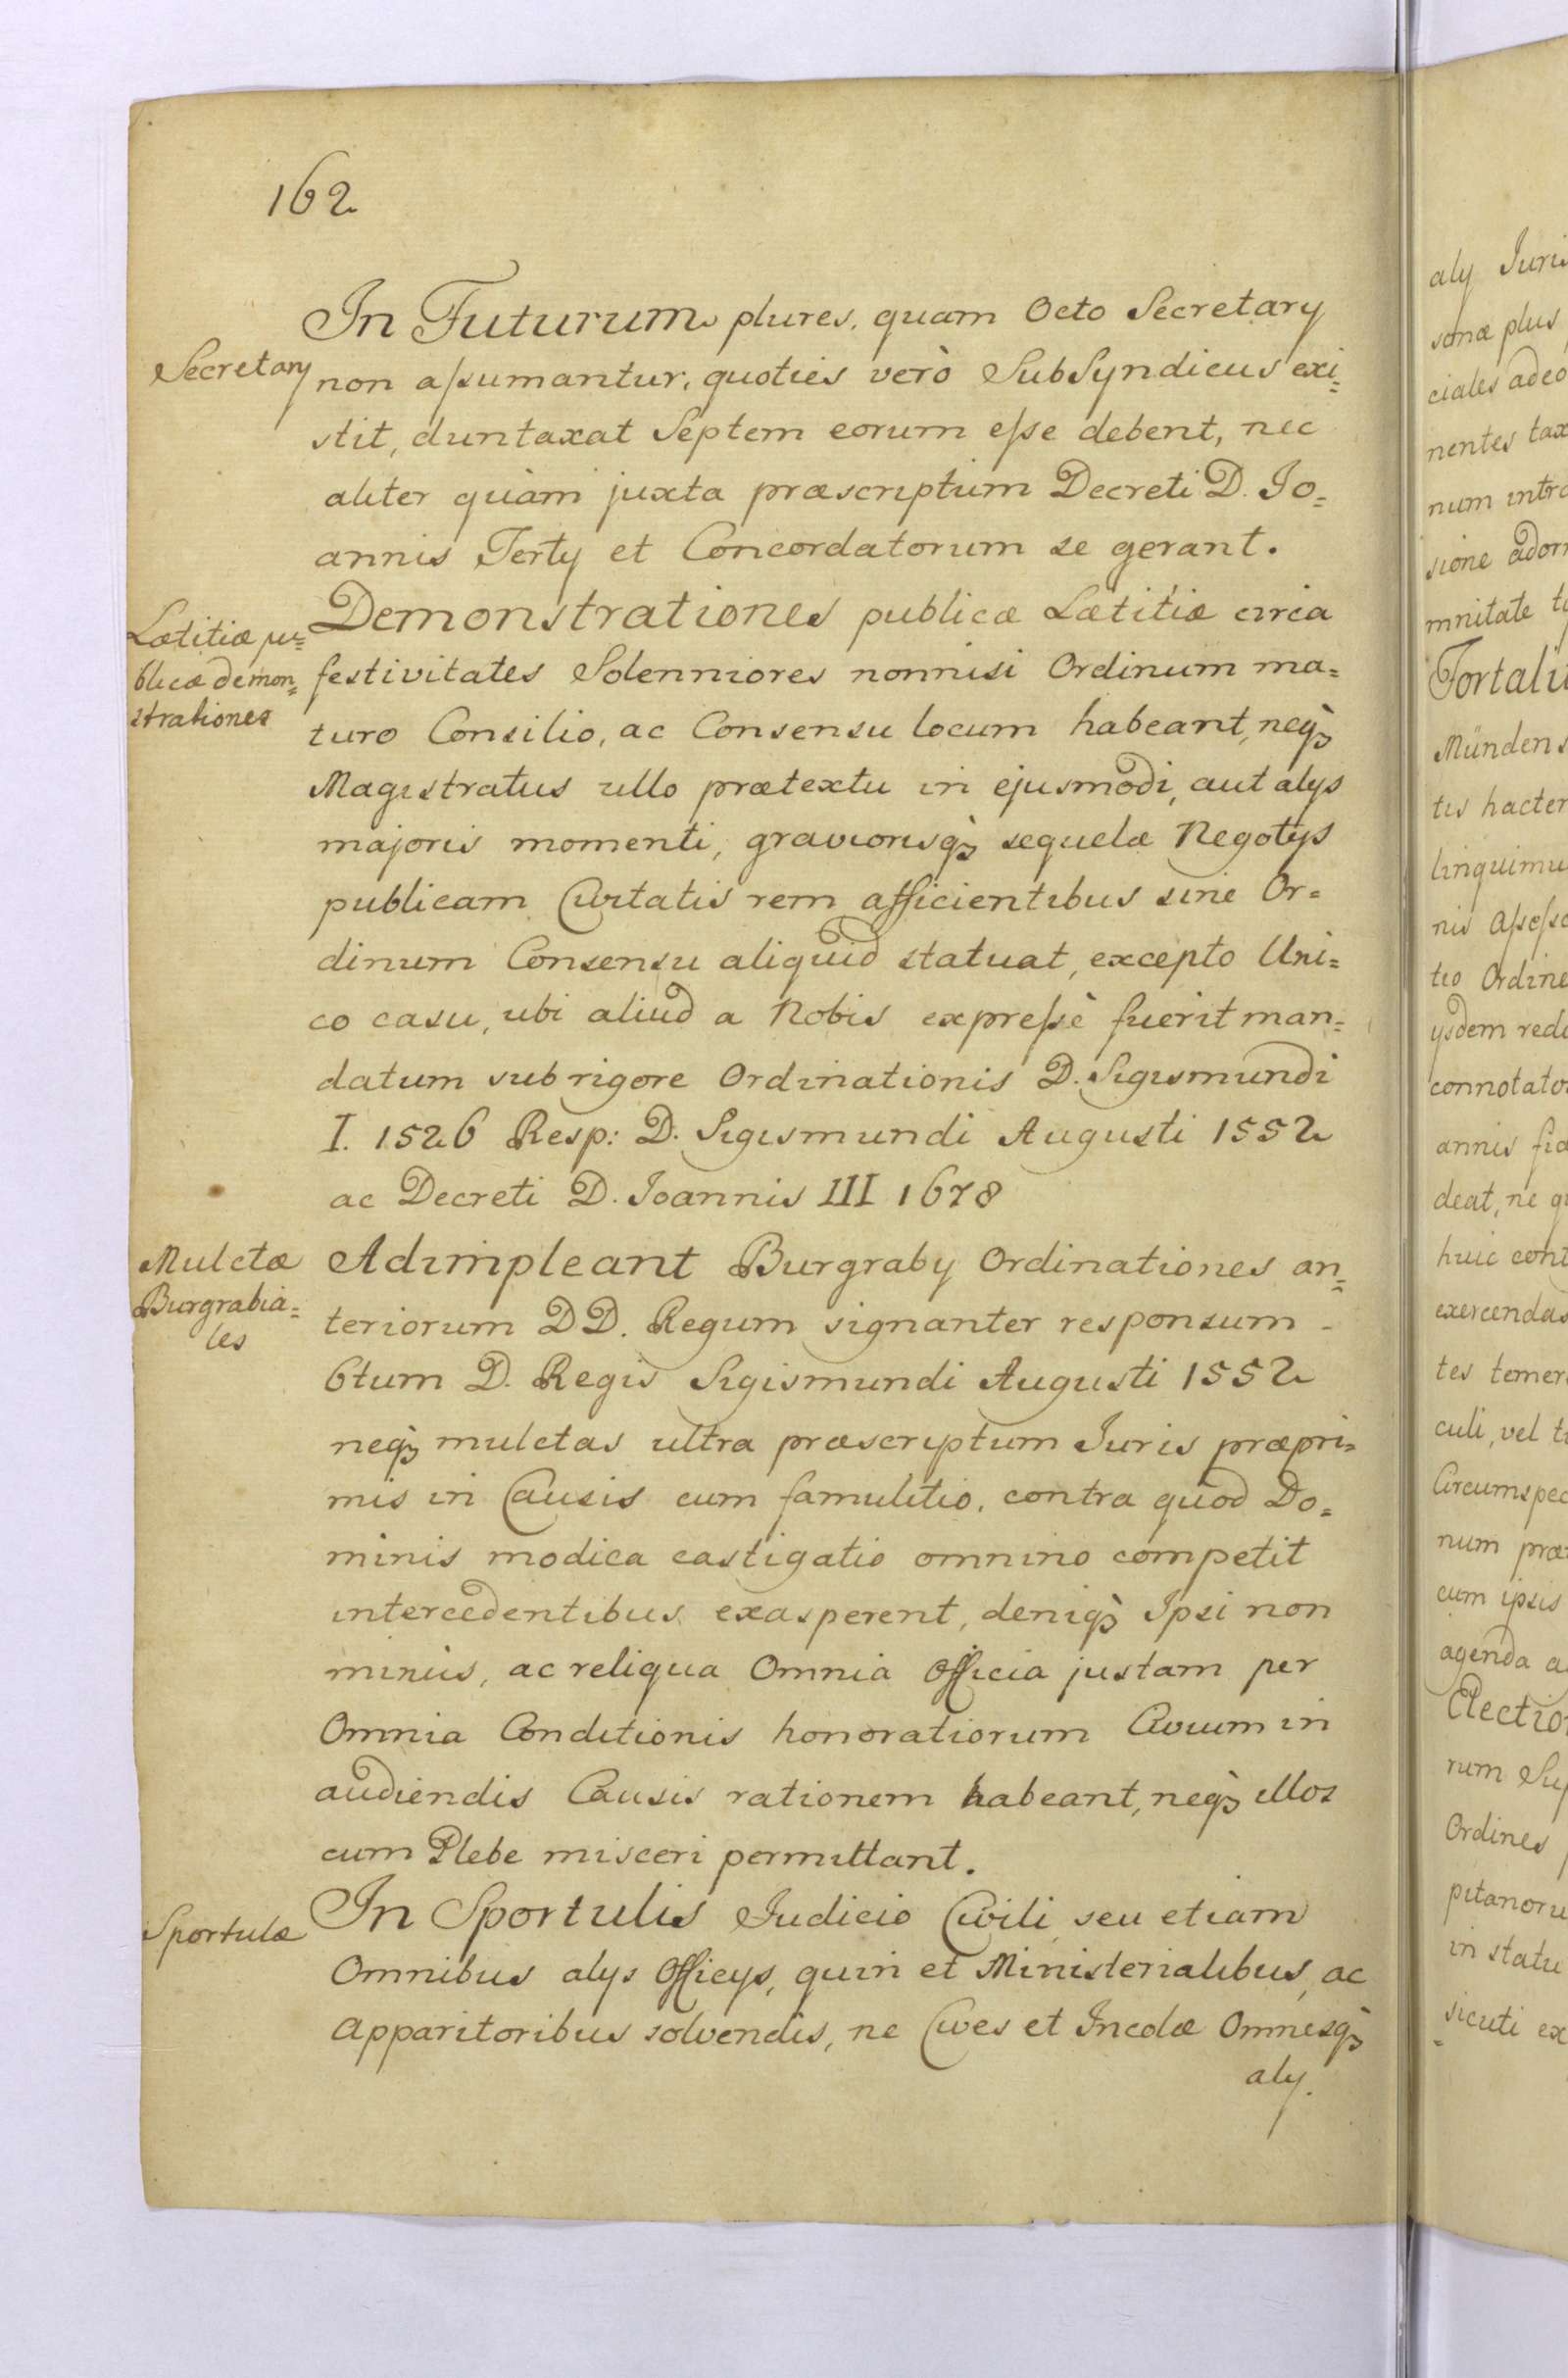 162
In Futurum plures, quam Octo Secretarÿ
Secretarÿ
non aſsumantur, quoties verò SubSyndicus exi=
stit, duntaxat Septem eorum eſse debent, nec
aliter quàm juxta præscriptum Decreti D. Jo=
annis Tertÿ et Concordatorum se gerant.
Demonstrationes publicæ Lætitiæ circa
Lætitiæ pu=
blicæ demon=
strationes
festivitates Solenniores nonnisi Ordinum ma=
turo Consilio, ac Consensu locum habeant, neq3
Magistratus ullo prætextu in ejusmodi, aut alÿs
majoris momenti, graviorisq3 sequelæ Negotÿs
publicam Civitatis rem afficientibus sine Or=
dinum Consensu aliquid statuat, excepto Uni=
co casu, ubi aliud a Nobis expreſsè fuerit man=
datum sub rigore Ordinationis D. Sigismundi
I. 1526 Resp: D. Sigismundi Augusti 1552
ac Decreti D. Joannis III 1678
Mulctæ
Burgrabia=
les
Adimpleant Burgrabÿ Ordinationes an=
teriorum DD. Regum signanter responsum
6tum D. Regis Sigismundi Augusti 1552
neq3 mulctas ultra præscriptum Juris præpri=
mis in Causis cum famulitio, contra quod Do=
minis modica castigatio omnino competit
intercedentibus exasperent, deniq3 Ipsi non
minùs, ac reliqua Omnia Officia justam per
Omnia Conditionis honoratiorum Civium in
audiendis Causis rationem habeant, neq3 illos
cum Plebe misceri permittant.
Sportulæ
In Sportulis Judicio Civili seu etiam
Omnibus alÿs Officÿs, quin et Ministerialibus, ac
Apparitoribus solvendis, ne Cives et Incolæ Omnesq3
alÿ.
alÿ
sonæ plus
ciales adeo
nentes
num
sione
mnitate
Mündens
tis
linquimu
nis
tio Ordine
ÿsdem
connotato
annis
deat, ne
huic
exercendas
tes
culi, vel
Circumspec
num
cum ipsis
agenda
Electio
rum
Ordines
pitanoru
in statu
sicuti ex